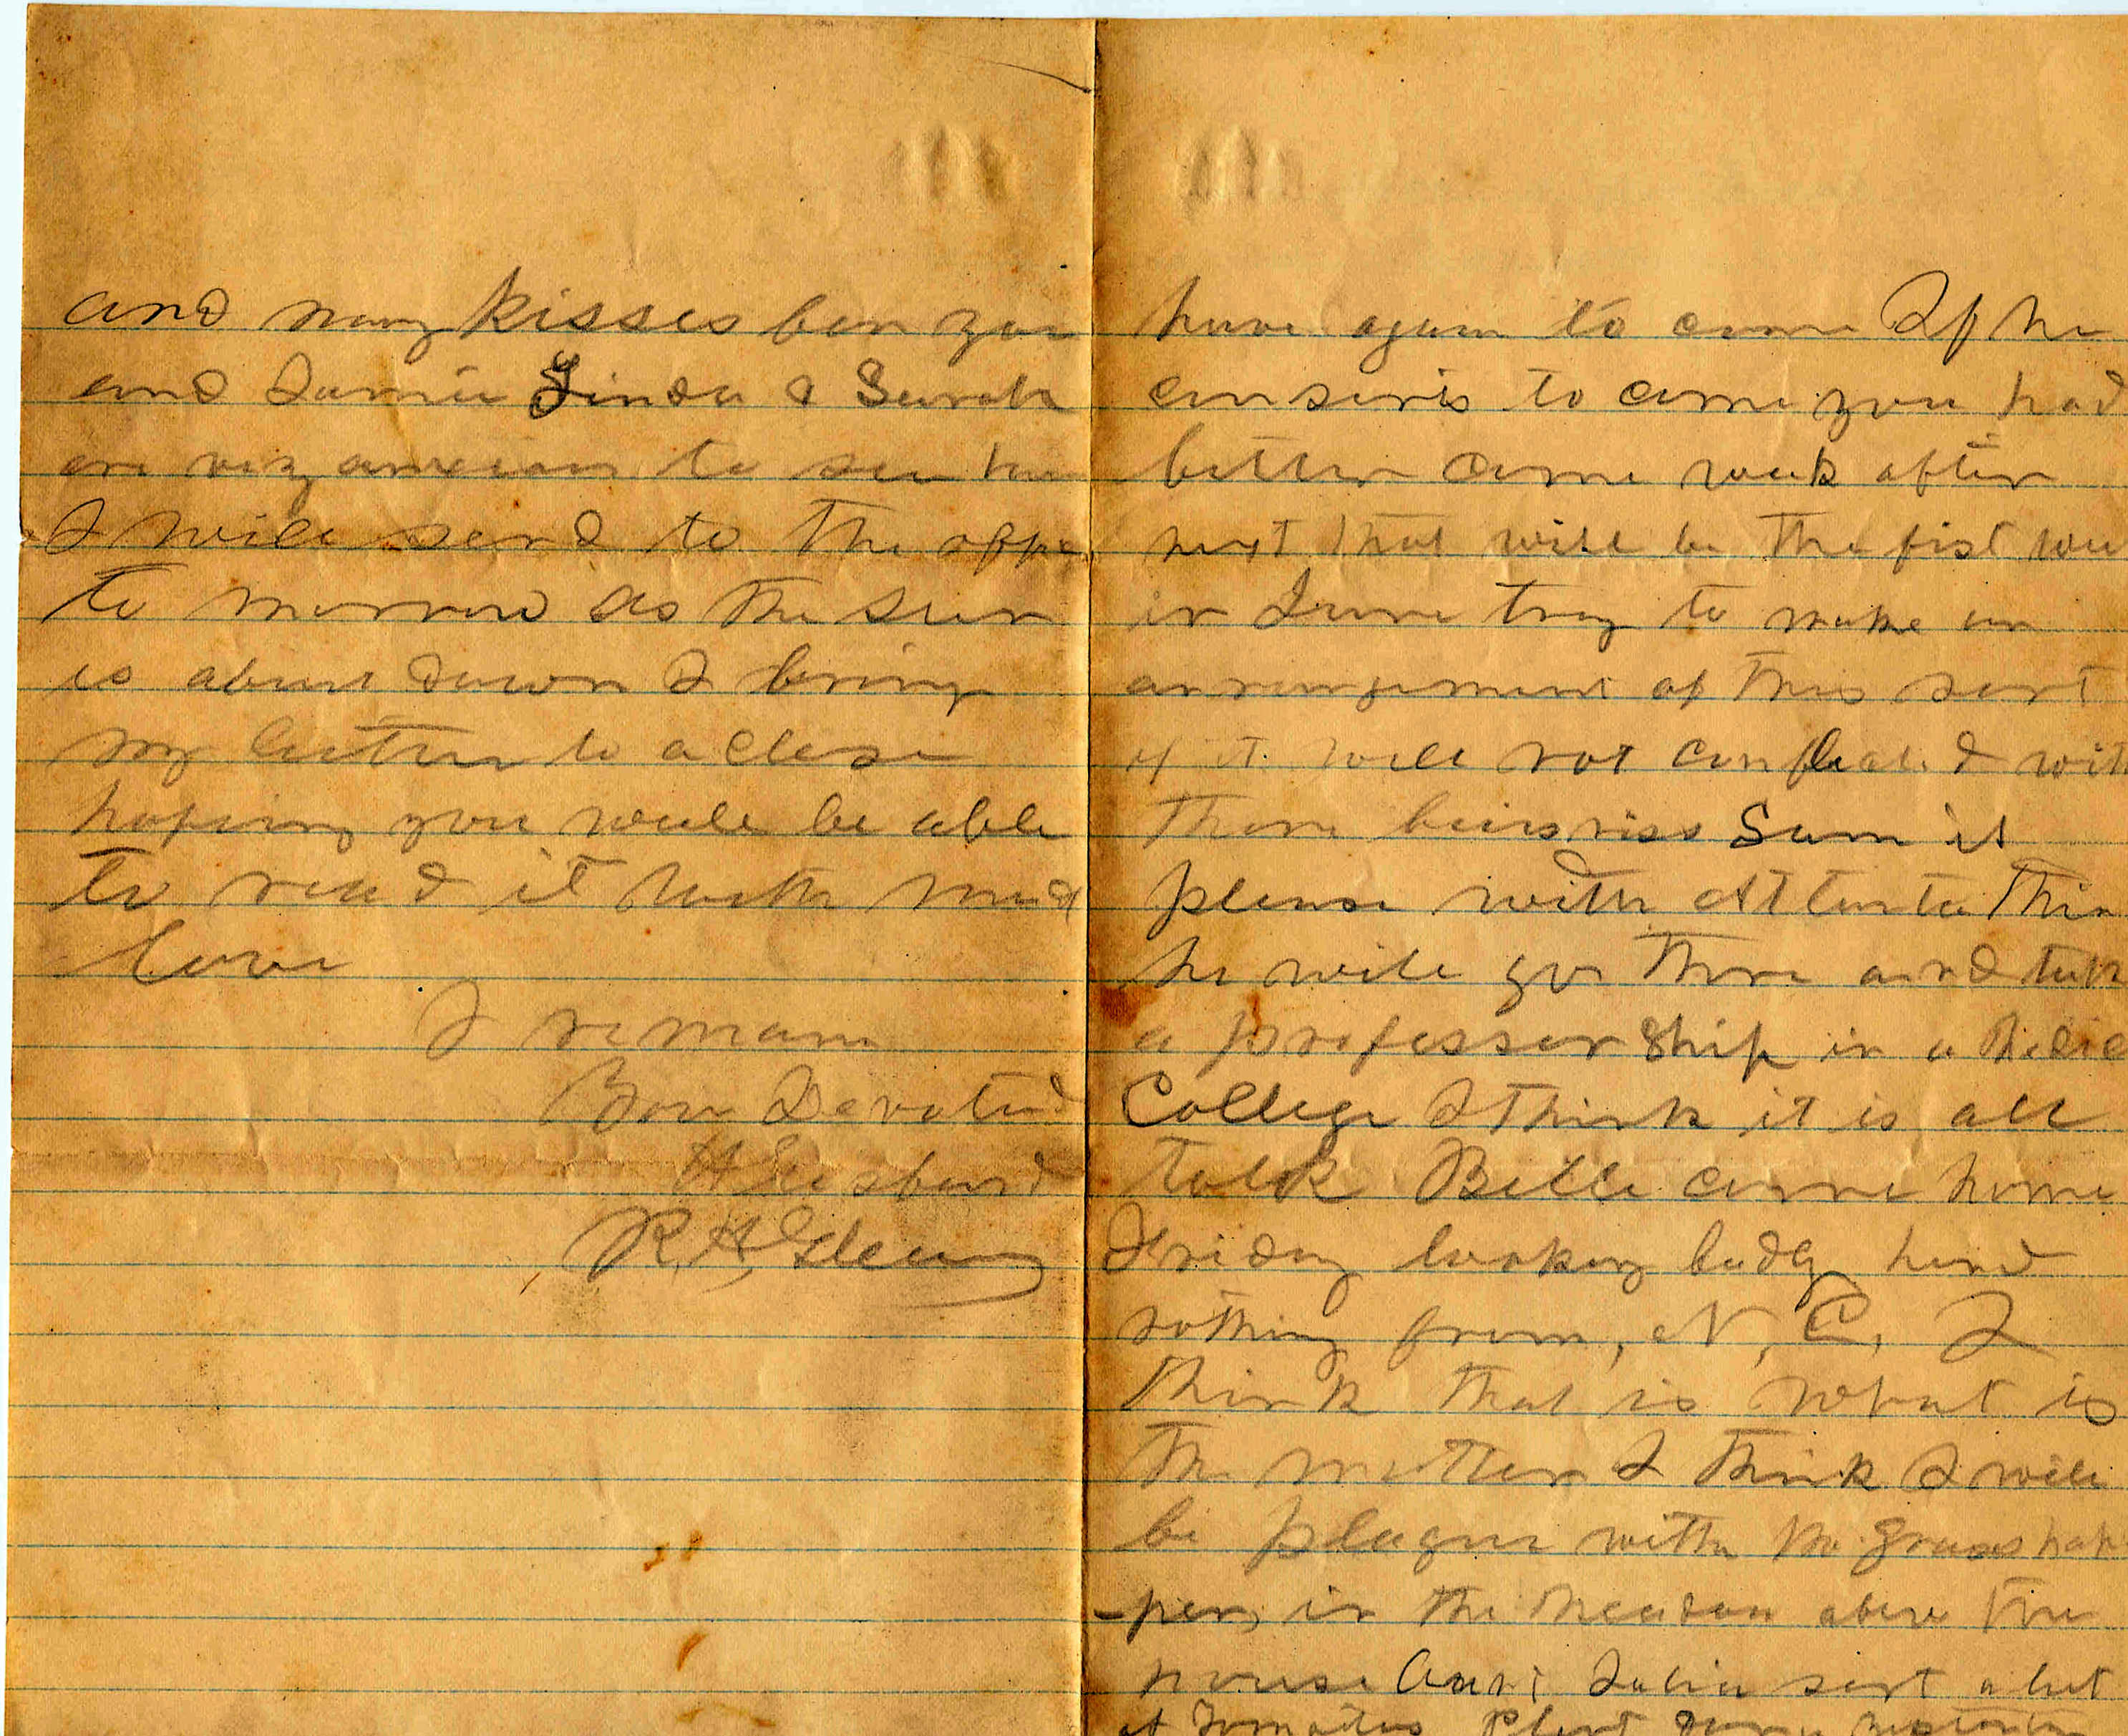 and many kisses for you
and Jamie Linda & Sarah
are very anxious to see him
I will send to the office
to morrow as the sun
is about down I bring
my letter to a close
hoping you will be able
to read it with much
love
I remain
Your Devoted
Husband
R. H.
have again to come If he
consents to come you had
better come week after
next that will be the fist
in June try to make an
arrangement of this sort
if it will not conflict with
there Sam is
please with Atlanta
he will go there and
a professor ship in a
College I think it is all
talk Belle come home
Friday looking badly
nothing from, N, C, I
think that is what is
the matter I think I will
be plague with grasshop
-pers in the meadow above the
house Aunt Julia sent a lot
of Tomatoes Plant